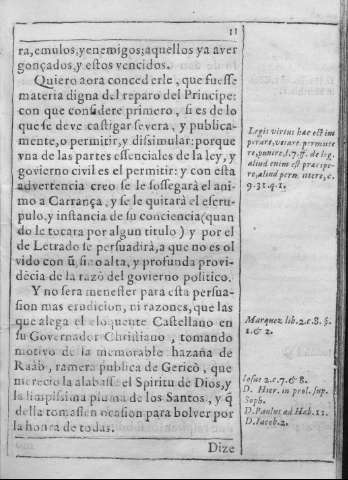 11
ra, emulos, y enemigos; aquellos ya aver
gonçados, y estos vencidos.
Quiero aora concederle, que fuesse
materia digna del reparo del Principe:
con que considere primero, si es de lo
que se deve castigar severa, y publica-
mente, o permitir, y dissimular: porque
vna de las partes essenciales de la ley, y
govierno civil es el permitir: y con esta
advertencia creo se le sossegará el ani
mo a Carrança, y se le quitará el escru-
pulo, y instancia de su conciencia (quan
do le tocara por algun titulo) y por el
de Letrado se persuadirà, a que no es ol
vido con ũ, si no alta, y profunda provi-
dēcia de la razõ del govierno politico.
Y no sera menester para esta persua-
sion mas erudicion, ni razones, que las
que alega el eloquente Castellano en
su Governador Christiano, tomando
motivo de la memorable hazaña de
Raab, ramera publica de Gericò, que
merecio la alabasse el Spiritu de Dios, y
la limpissima pluma de los Santos, y q̃
della tomassen ocasion para bolver por
la honra de todas.
Dize
Legis virtus hæc est im
perare, vetare, permitte
re, punire, l. 7. ff. de lig.
aliud enim est præcipe-
re, aliud permittere, c.
9. 31. q. 1.
Marquez lib. 2. c. 8. §.
1. & 2.
Iosue 2. c. 7. & 8.
D. Hier. in prol. sup.
Soph.
D. Paulus ad Hab. 11.
D. Iacob. 2.